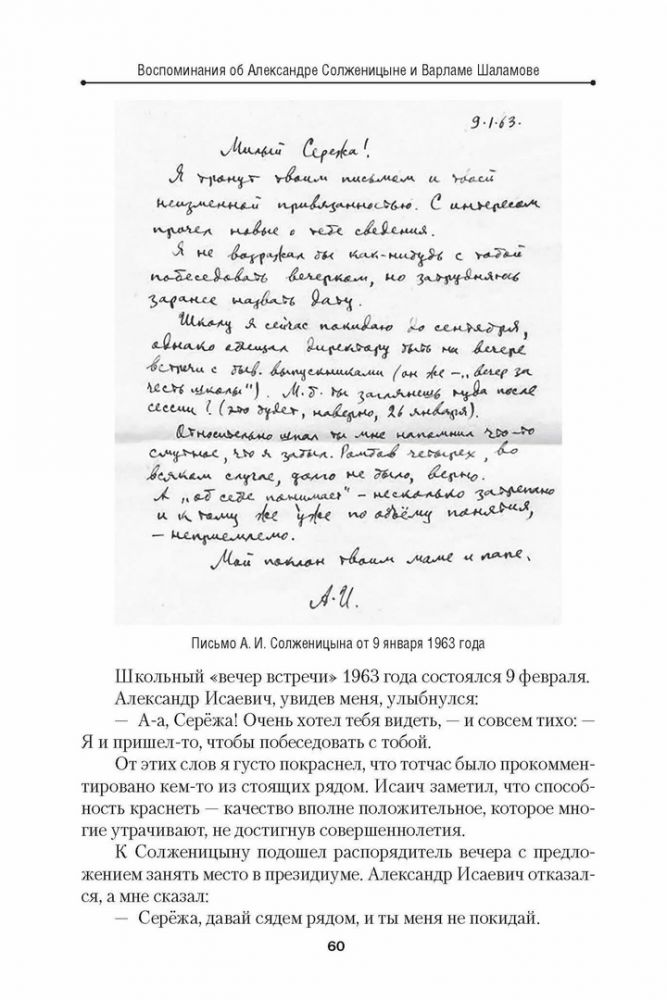 Воспоминания об Александре Солженицыне и Варламе Шаламове
9.1.63.
Милый Сережа!
Я тронут твоим письмом и твоей
неизменной привязанностью. С интересом
прочел новые о тебе сведения.
Я не возражал бы как-нибудь с тобой
побеседовать вечерком, но затрудняюсь
заранее назвать дату.
Школу я сейчас покидаю до сентября,
однако обещал директору быть на вечере
встречи с быв. выпускниками (он же – „вечер за
честь школы"). М.б. ты заглянешь туда после
сессии? (это будет, наверно, 26 января).
Относительно шпал ты мне напомнил что-то
смутное, что я забыл. Ромбов четырех, во
всяком случае, долго не было, верно.
А „об себе понимает" – несколько затрепано
и к тому же уже по объёму понятия,
– неприемлемо.
Мой поклон твоим маме и папе.
А.И.
Письмо А. И. Солженицына от 9 января 1963 года
Школьный «вечер встречи» 1963 года состоялся 9 февраля.
Александр Исаевич, увидев меня, улыбнулся:
— А-а, Серёжа! Очень хотел тебя видеть, — и совсем тихо: —
Я и пришел-то, чтобы побеседовать с тобой.
От этих слов я густо покраснел, что тотчас было прокоммен-
тировано кем-то из стоящих рядом. Исаич заметил, что способ-
ность краснеть — качество вполне положительное, которое мно-
гие утрачивают, не достигнув совершеннолетия.
К Солженицыну подошел распорядитель вечера с предло-
жением занять место в президиуме. Александр Исаевич отказал-
ся, а мне сказал:
— Серёжа, давай сядем рядом, и ты меня не покидай.
60